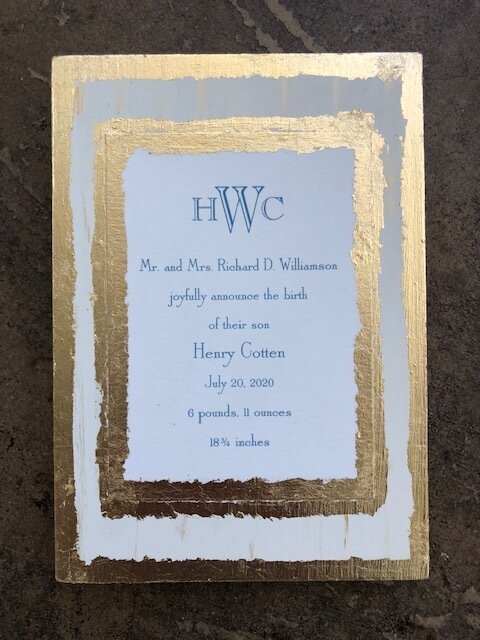 HWC
Mr. and Mrs. Richard D. Williamson
joyfully announce the birth
of their son
Henry Cotten
July 20, 2020
6 pounds, 11 ounces
18¾ inches